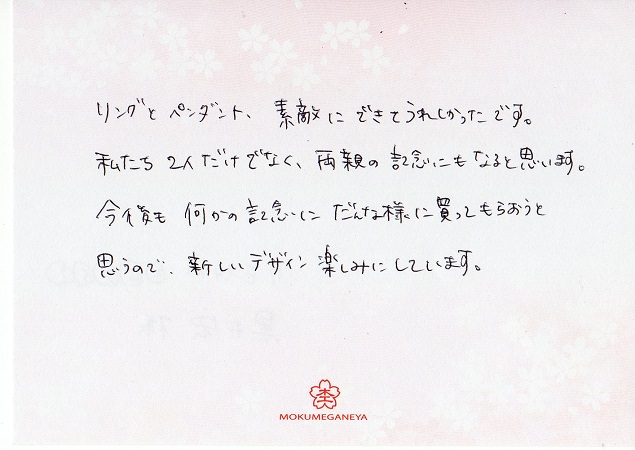 リングと ペンダント、素敵に できてうれしかったです。
私たち 2人だけでなく、両親の 記念にもなると思います。
今後も 何かの記念に だんな様に買ってもらおうと
思うので、新しいデザイン楽しみにしています。
MOKUMEGANEYA